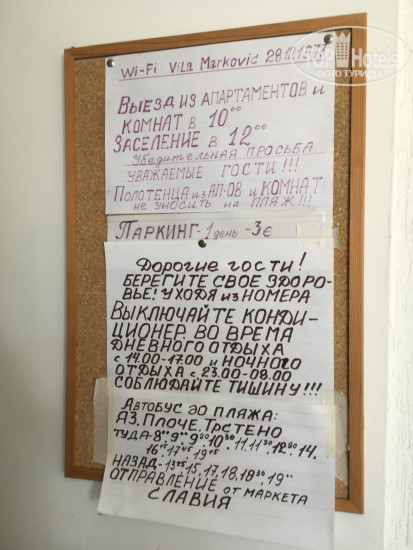 TopHotels
ФОТО ТУРИСТА
Wi-Fi Vila Marković 28101973
Выезд из апартаментов и
комнат в 10⁰⁰
Заселение в 12⁰⁰
Убедительная просьба
Уважаемые гости!!!
Полотенца из ап-ов и комнат
не уносить на пляж!!!
Паркинг-1 день -3€
Дорогие гости!
Берегите свое здоро-
вье! Уходя из номера
Выключайте конди-
ционер. Во время
дневного отдыха
с 14.00-17.00 и ночного
отдыха с 23.00-08.00
соблюдайте тишину!!!
Автобус до пляжа:
Яз, Плоче, Трстено
туда-
Назад-
отправление от маркета
Славия